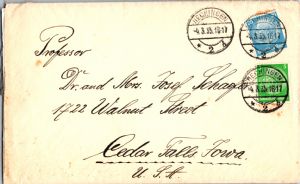 Professor
Dr. and Mrs. Josef Schaefer
1722 Walnut Street
Cedar Falls Iowa.
U. S. A
-4.3.35.16-17
* 2 a
-4.3.35.16-17
* 2 a